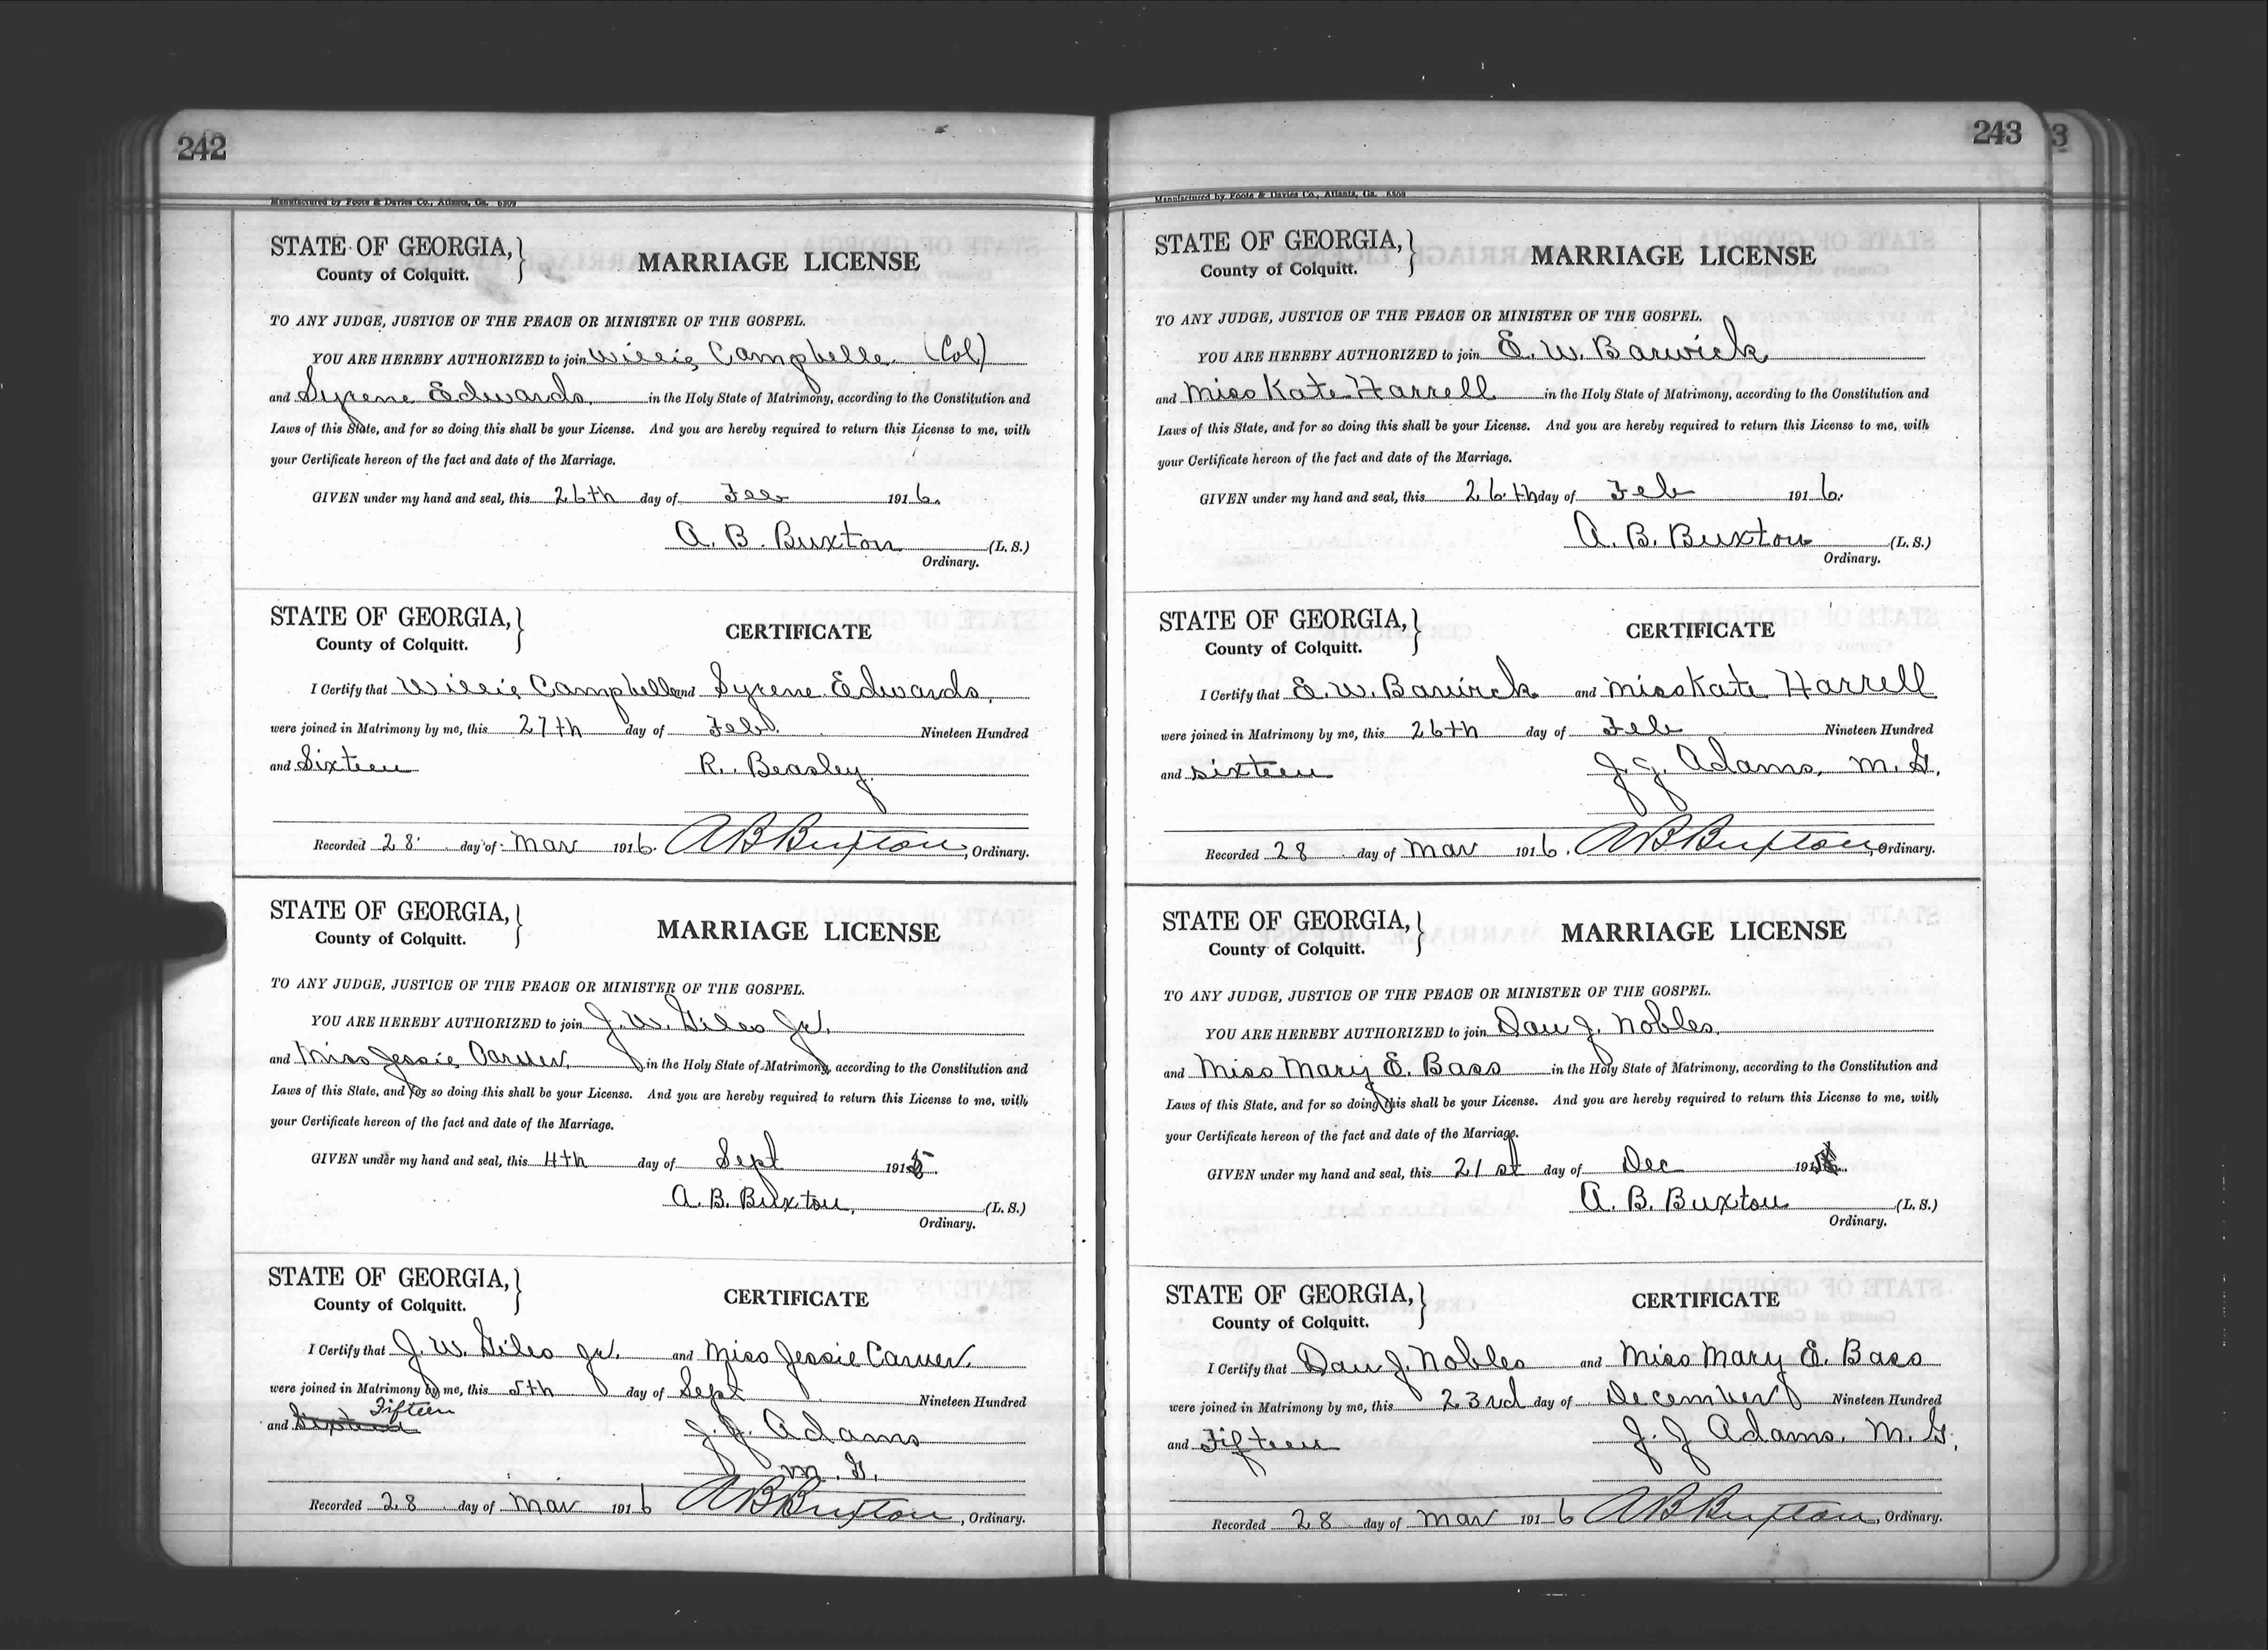 242
Manufactured by Foote & Davies Co., Atlanta, Ga. 6309
STATE OF GEORGIA,
County of Colquitt.
MARRIAGE LICENSE
TO ANY JUDGE, JUSTICE OF THE PEACE OR MINISTER OF THE GOSPEL.
YOU ARE HEREBY AUTHORIZED to join Willie Campbelle (Col)
and Syrene Edwards, in the Holy State of Matrimony, according to the Constitution and
Laws of this State, and for so doing this shall be your License. And you are hereby required to return this License to me, with
your Certificate hereon of the fact and date of the Marriage.
GIVEN under my hand and seal, this 26th day of Feb 1916.
A. B. Buxton (L. S.)
Ordinary.
STATE OF GEORGIA,
County of Colquitt.
CERTIFICATE
I Certify that Willie Campbelle and Syrene Edwards,
were joined in Matrimony by me, this 27th day of Feb. Nineteen Hundred
and Sixteen R. Beasley.
Recorded 28 day of Mar 1916. AB Buxton, Ordinary.
STATE OF GEORGIA,
County of Colquitt.
MARRIAGE LICENSE
TO ANY JUDGE, JUSTICE OF THE PEACE OR MINISTER OF THE GOSPEL.
YOU ARE HEREBY AUTHORIZED to join J. W. Giles Jr.
and Miss Jessie Carver, in the Holy State of Matrimony, according to the Constitution and
Laws of this State, and for so doing this shall be your License. And you are hereby required to return this License to me, with
your Certificate hereon of the fact and date of the Marriage.
GIVEN under my hand and seal, this 4th day of Sept 1915.
A. B. Buxton, (L. S.)
Ordinary.
STATE OF GEORGIA,
County of Colquitt.
CERTIFICATE
I Certify that J. W. Giles Jr. and Miss Jessie Carver
were joined in Matrimony by me, this 5th day of Sept Nineteen Hundred
and Sixteen Fifteen J. J. Adams
M. G.
Recorded 28 day of Mar 1916 AB Buxton, Ordinary.
243
3
Manufactured by Foote & Davies Co., Atlanta, Ga. 6309
STATE OF GEORGIA,
County of Colquitt.
MARRIAGE LICENSE
TO ANY JUDGE, JUSTICE OF THE PEACE OR MINISTER OF THE GOSPEL.
YOU ARE HEREBY AUTHORIZED to join E. W. Barwick
and Miss Kate Harrell in the Holy State of Matrimony, according to the Constitution and
Laws of this State, and for so doing this shall be your License. And you are hereby required to return this License to me, with
your Certificate hereon of the fact and date of the Marriage.
GIVEN under my hand and seal, this 26th day of Feb 1916.
A. B. Buxton (L. S.)
Ordinary.
STATE OF GEORGIA,
County of Colquitt.
CERTIFICATE
I Certify that E. W. Barwick and Miss Kate Harrell
were joined in Matrimony by me, this 26th day of Feb Nineteen Hundred
and sixteen J. J. Adams, M. G.
Recorded 28 day of Mar 1916. AB Buxton, Ordinary.
STATE OF GEORGIA,
County of Colquitt.
MARRIAGE LICENSE
TO ANY JUDGE, JUSTICE OF THE PEACE OR MINISTER OF THE GOSPEL.
YOU ARE HEREBY AUTHORIZED to join Dan J. Nobles.
and Miss Mary E. Bass in the Holy State of Matrimony, according to the Constitution and
Laws of this State, and for so doing this shall be your License. And you are hereby required to return this License to me, with
your Certificate hereon of the fact and date of the Marriage.
GIVEN under my hand and seal, this 21st day of Dec 1915.
A. B. Buxton (L. S.)
Ordinary.
STATE OF GEORGIA,
County of Colquitt.
CERTIFICATE
I Certify that Dan J. Nobles and Miss Mary E. Bass
were joined in Matrimony by me, this 23rd day of December Nineteen Hundred
and Fifteen J. J Adams. M. G.
Recorded 28 day of Mar 1916 AB Buxton, Ordinary.